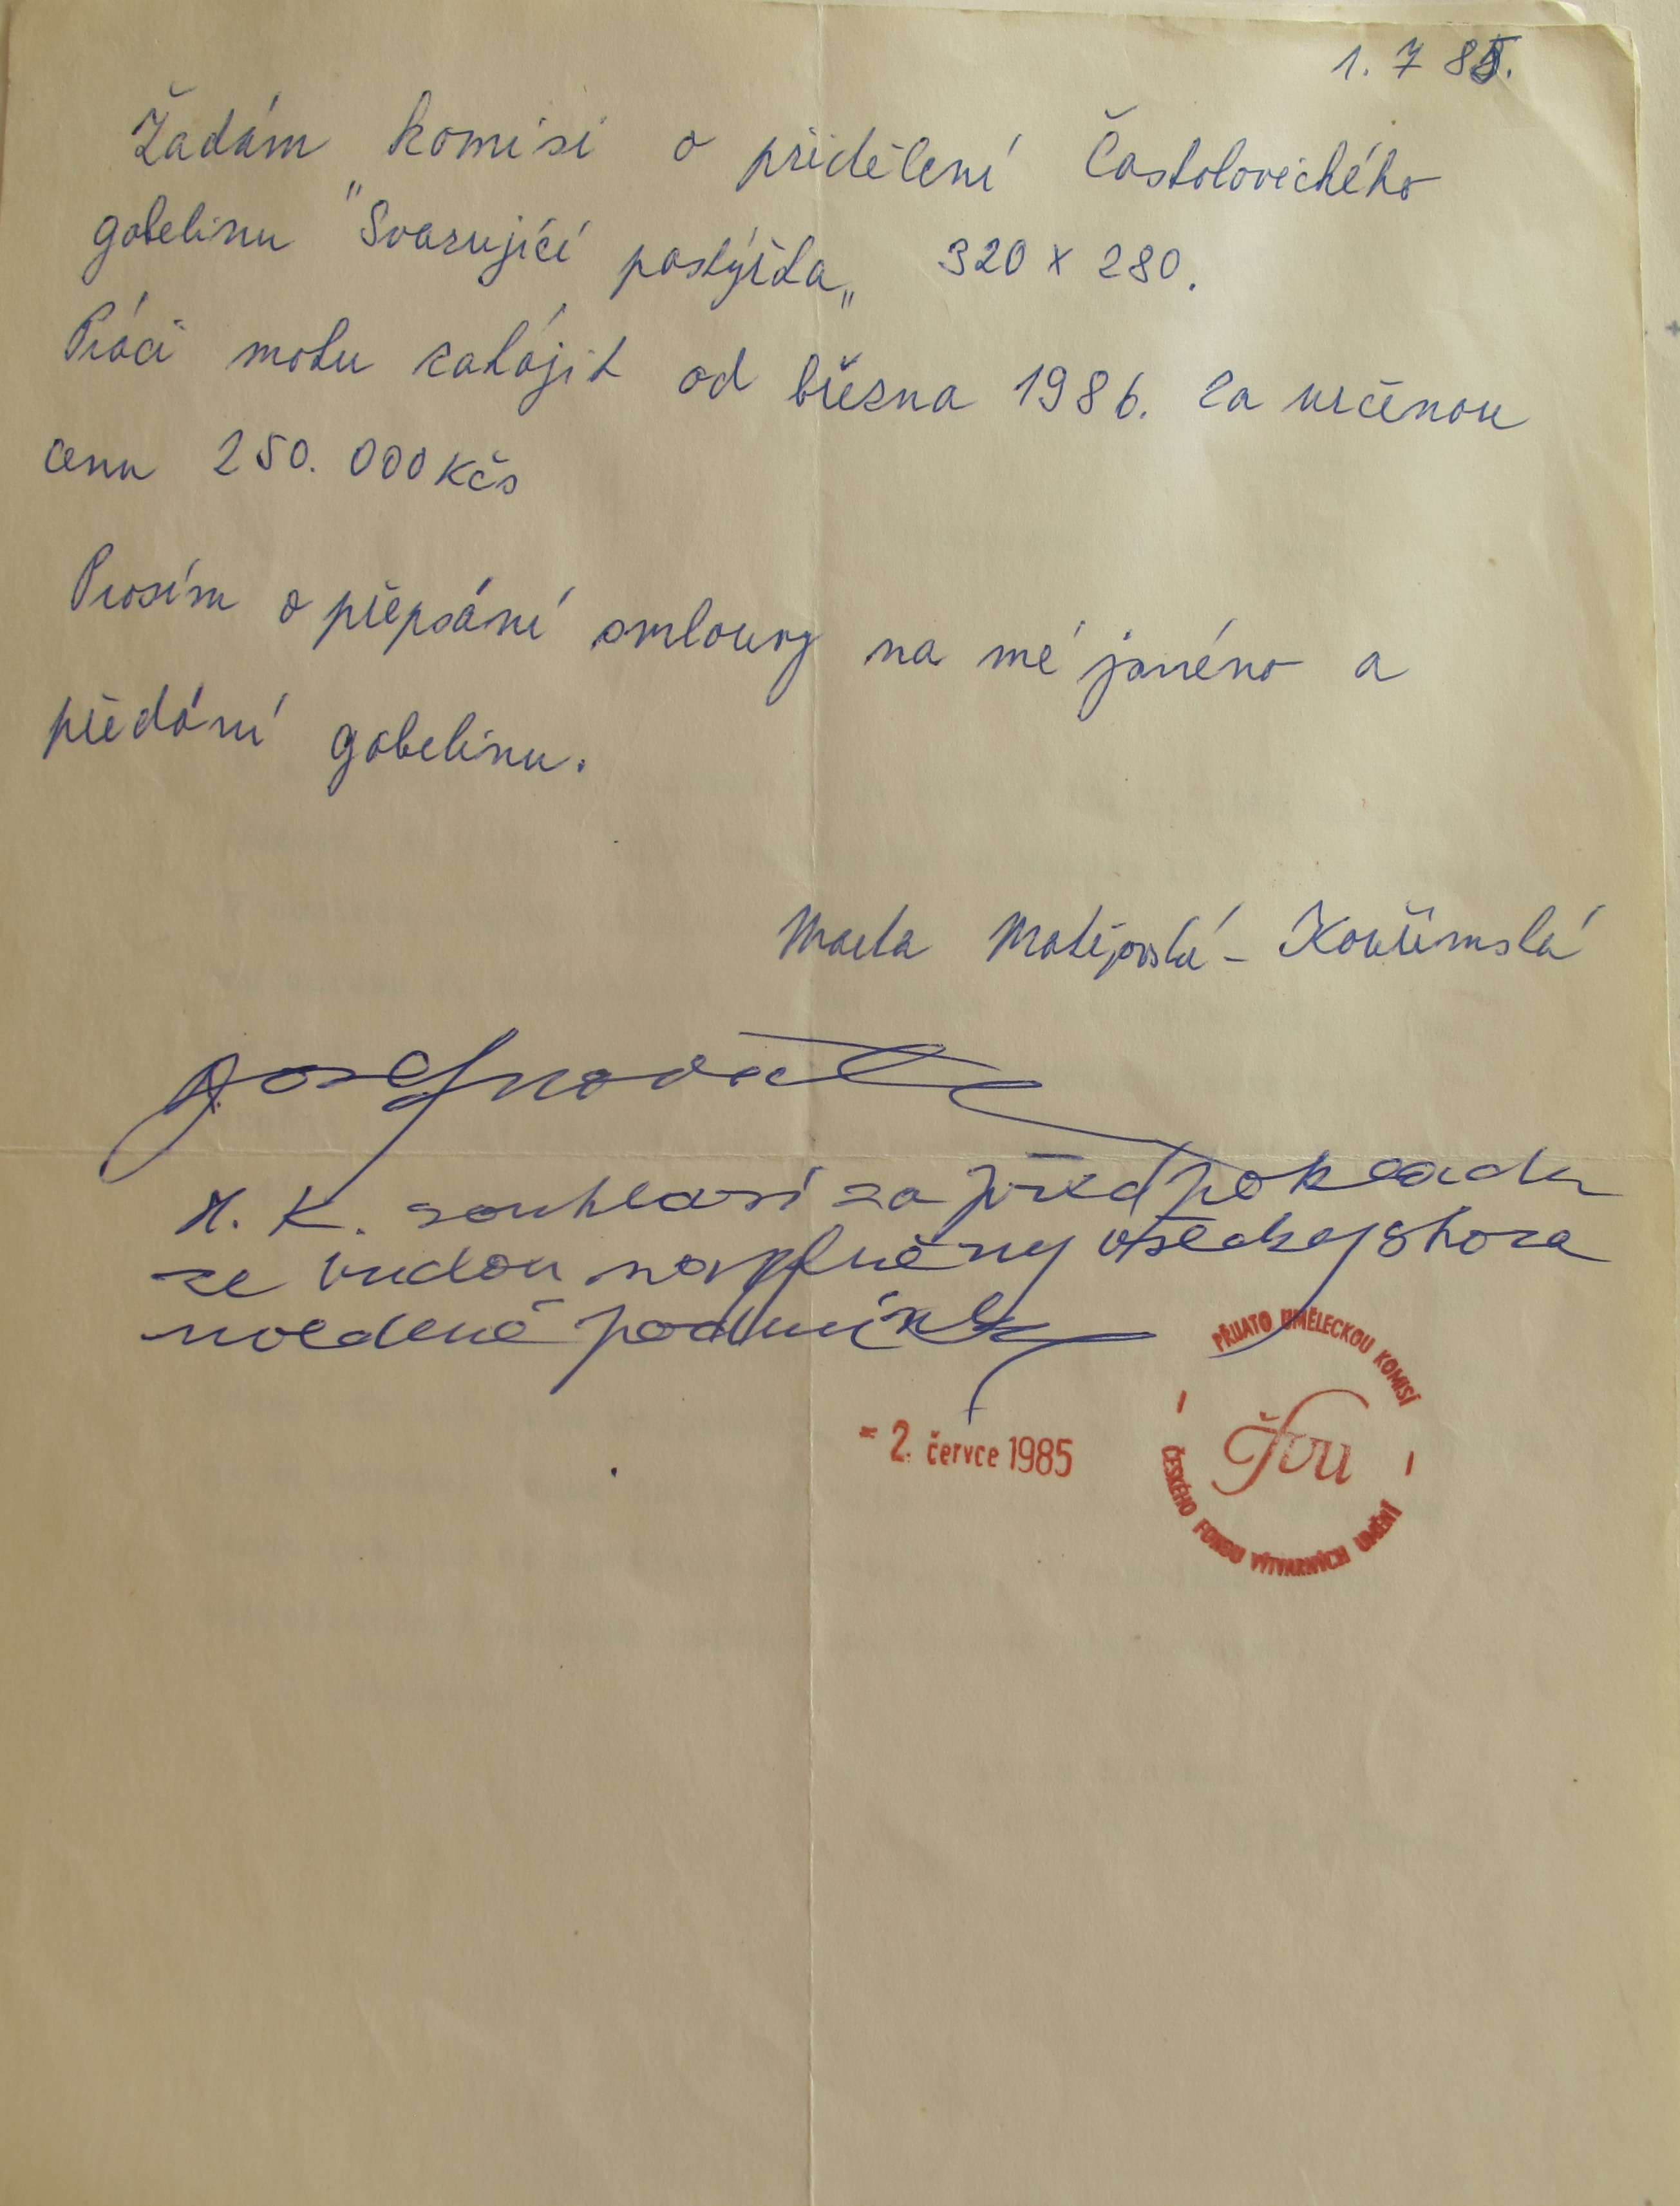 1. 7 85.
Žádám komisi o přidělení Častolovického
gobelinu "Svazující pastýřka„ 320 x 280.
Práci mohu zahájit od března 1986. Za určenou
cenu 250.000 Kčs
Prosím o přepsání smlouvy na mé jméno a
předání gobelinu.
Marta Matějovská - Kouřimská
Josef Novák
U. K. souhlasí za předpokladu
že budou naplněny všechny shora
uvedené podmínky
- 2. července 1985
PŘIJATO UMĚLECKOU KOMISÍ
ČFVU
ČESKÉHO FONDU VÝTVARNÝCH UMĚNÍ